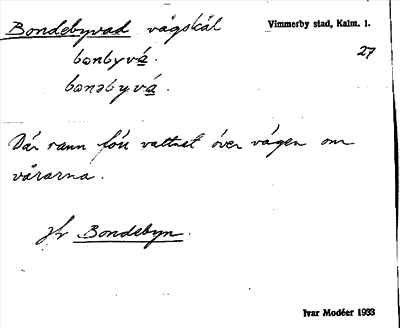 Bondebyvad vägskäl
Vimmerby stad, Kalm. l.
27
bonbyvá.
bonəbyvá.
Där rann förr vattnet över vägen om
vårarna.
Jfr Bondebyn.
Ivar Modéer 1933